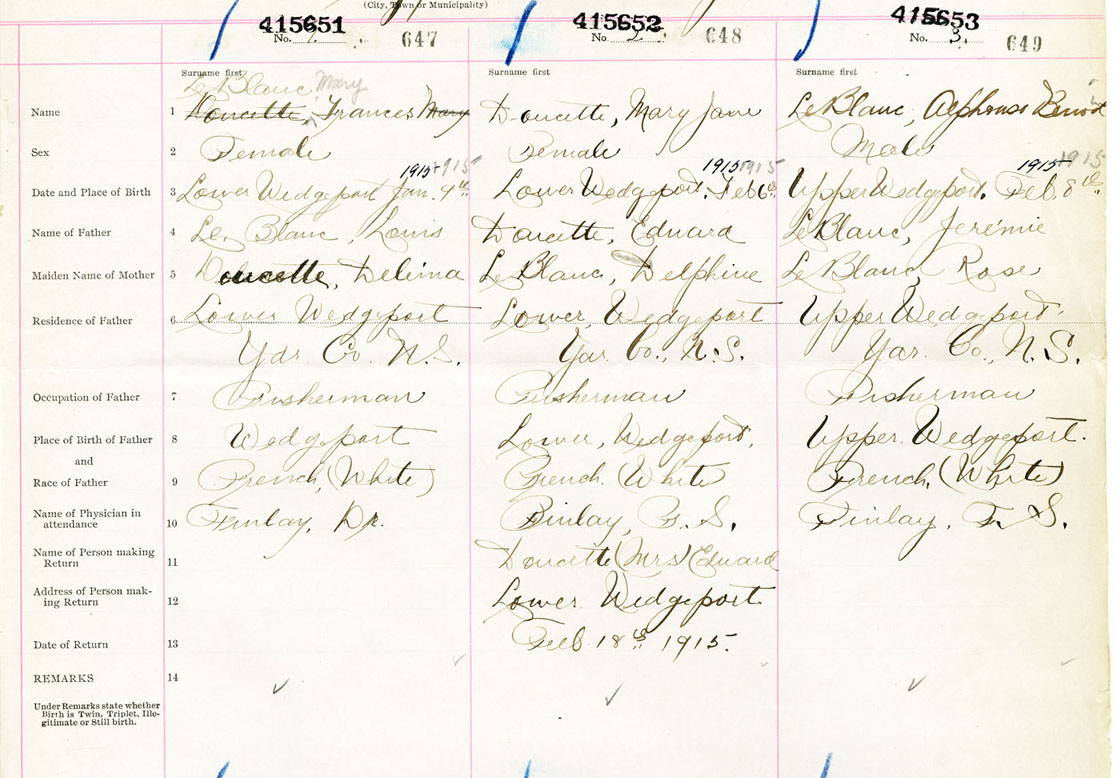 (City, Town or Municipality)
415651 415652 415653
No. 1. 647 No. 2. 648 No. 3. 649
Surname first Surname first Surname first
LeBlanc Mary
Name 1 Doucette, Frances Mary Doucette, Mary Jane LeBlanc, Alphonse Benoit
Sex 2 Female Female Male
1915 1915 1915 1915 1915 1915
Date and Place of Birth 3 Lower Wedgeport Jan. 9th Lower Wedgeport, Feb 6th Upper Wedgeport, Feb. 8th
Name of Father 4 Le Blanc, Louis Doucette, Edward LeBlanc, Jerémie
Maiden Name of Mother 5 Doucette, Delima LeBlanc, Delphine LeBlanc, Rose
Residence of Father 6 Lower Wedgeport Lower, Wedgeport Upper Wedgeport.
Yar. Co N.S. Yar. Co., N.S. Yar. Co., N.S.
Occupation of Father 7 Fisherman Fisherman Fisherman
Place of Birth of Father 8 Wedgeport Lower, Wedgeport. Upper. Wedgeport.
and
Race of Father 9 French, (White) French. (White French, (White)
Name of Physician in
attendance 10 Finlay, Dr. Finlay, F. S. Finlay, F. S.
Name of Person making
Return 11 Doucette (Mrs) Edward
Address of Person mak-
ing Return 12 Lower Wedgeport
Date of Return 13 Feb 18th 1915.
REMARKS 14
Under Remarks state whether
Birth is Twin, Triplet, Ille-
gitimate or Still birth.